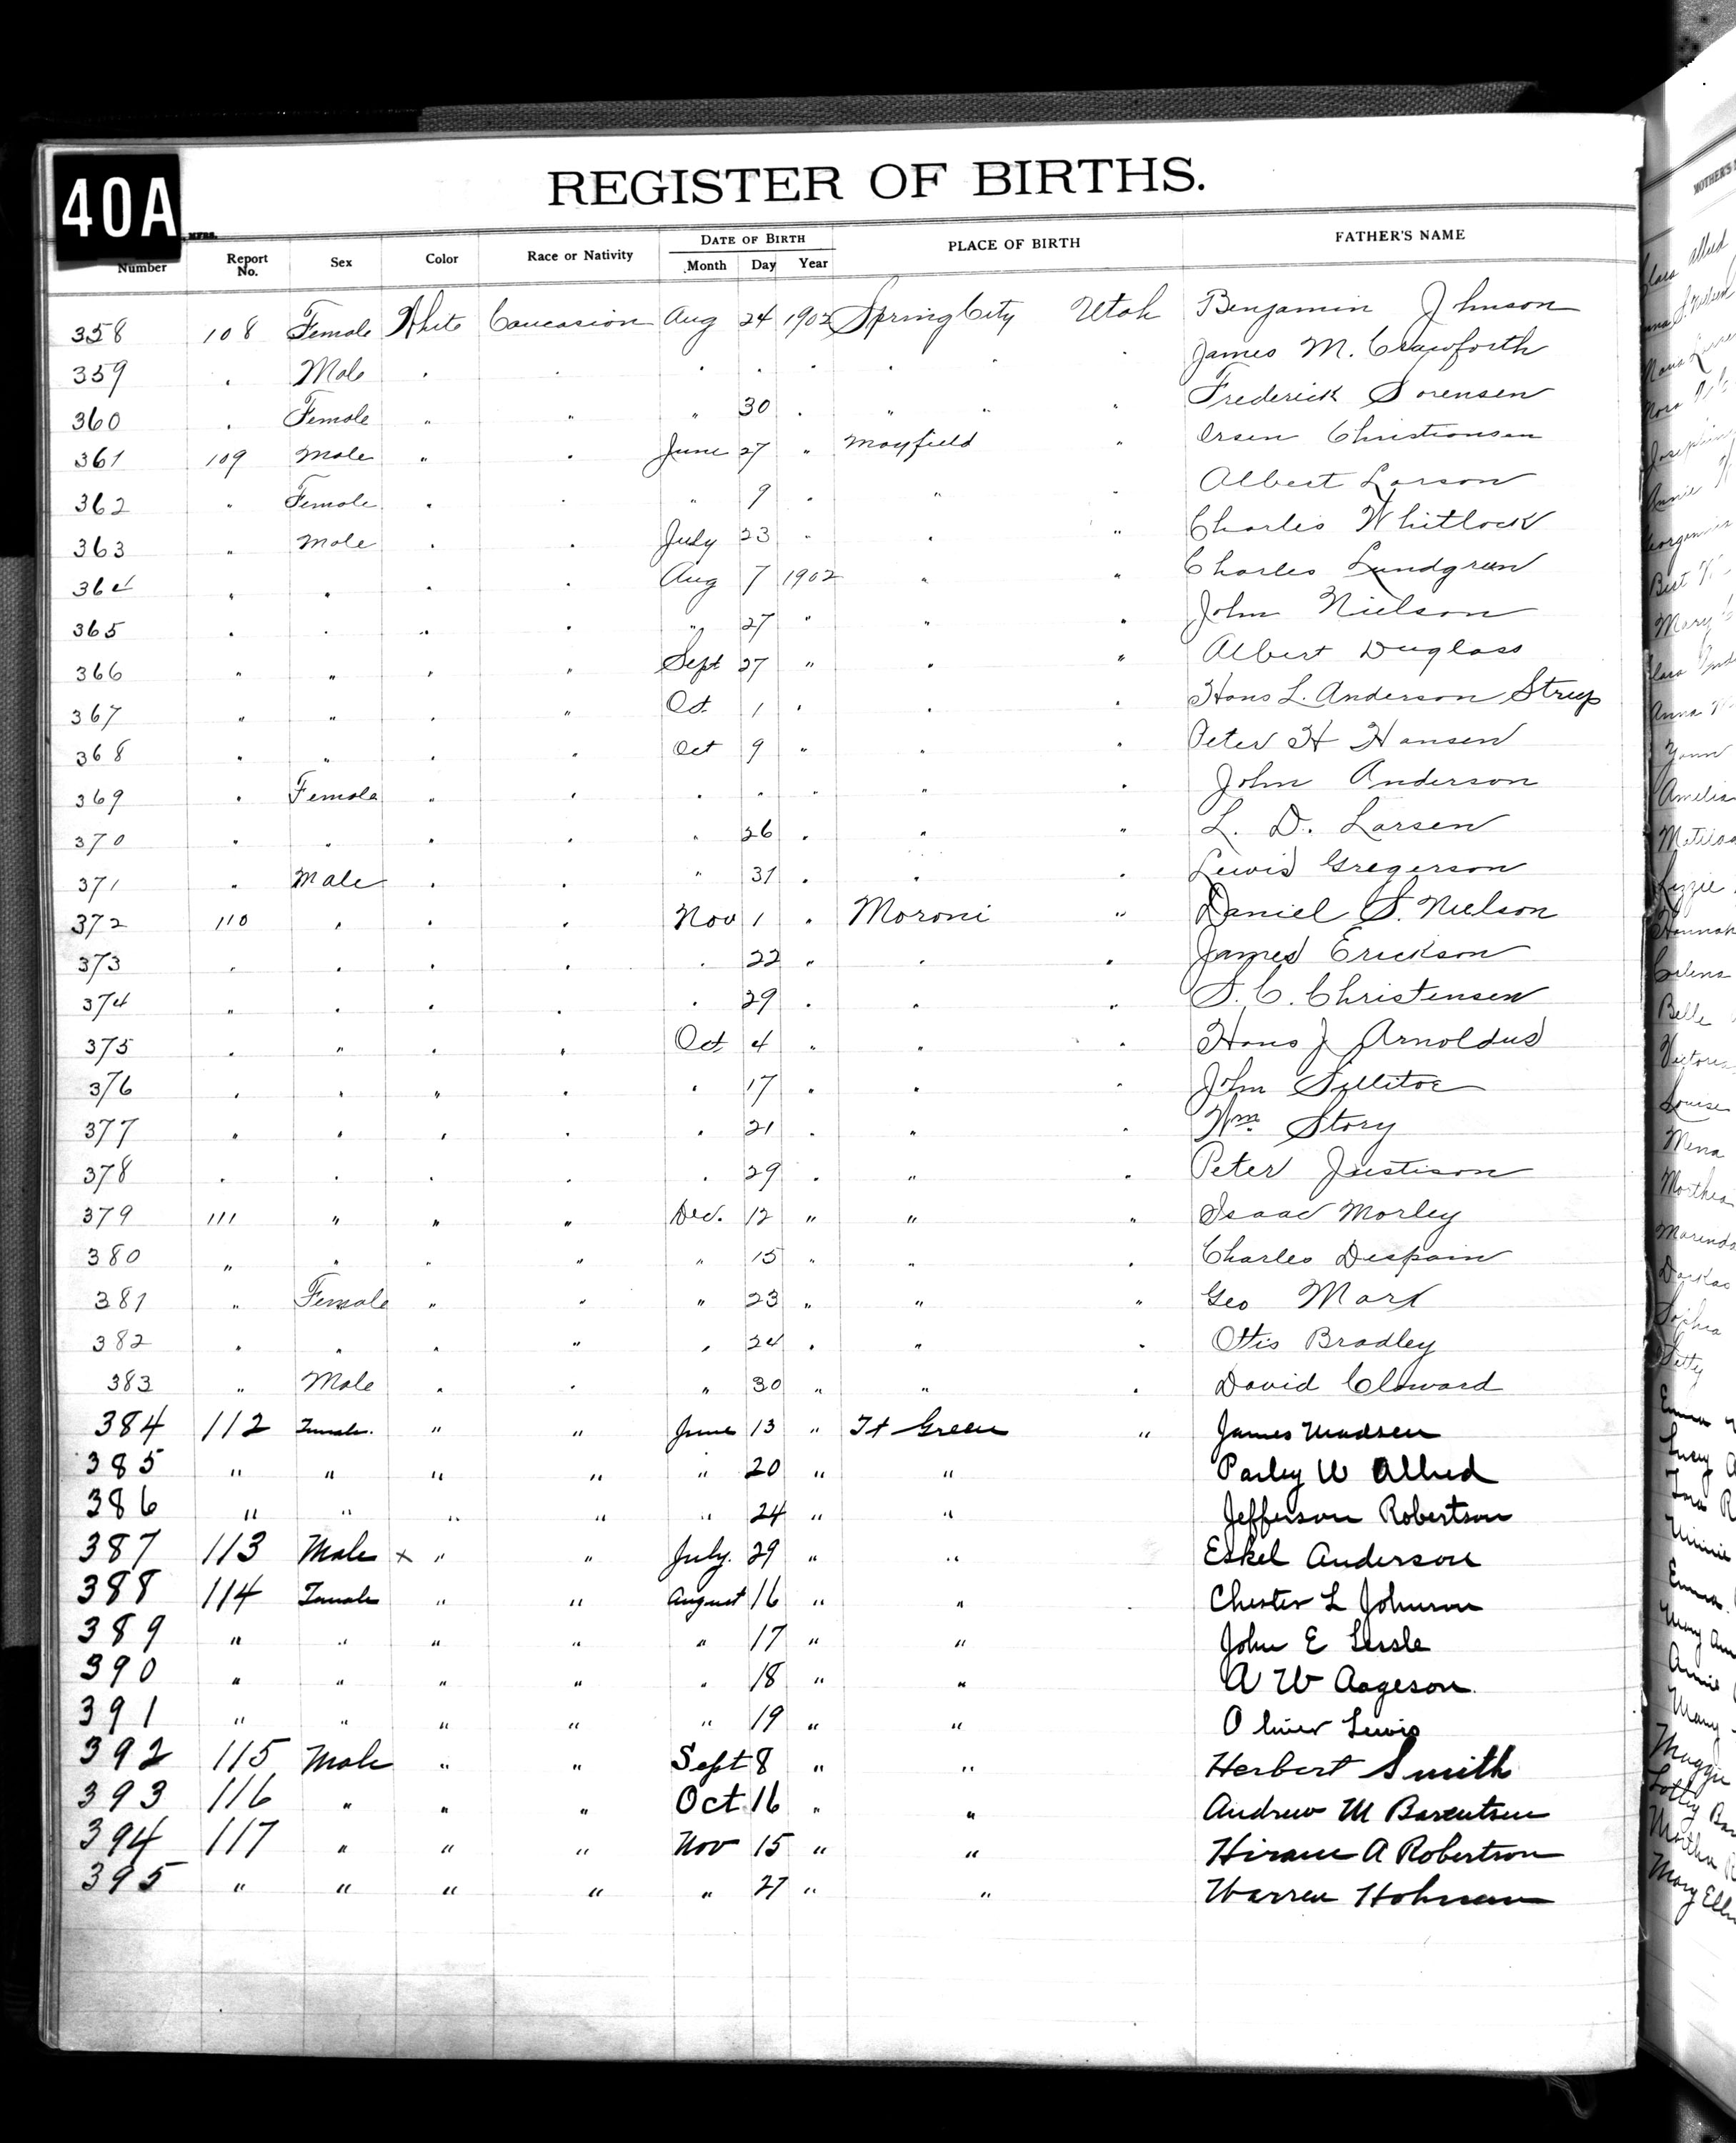 40A
REGISTER OF BIRTHS.
Number Report No. Sex Color Race or Nativity DATE OF BIRTH Month Day Year PLACE OF BIRTH FATHER'S NAME
358 108 Female White Caucasion Aug 24 1902 Spring City Utah Benjamin Johnson
359 " Male " " " " " " " James M. Crawforth
360 " Female " " " 30 " " " " Frederick Sorensen
361 109 Male " " June 27 " Mayfield " Orson Christiansen
362 " Female " " " 9 " " " Albert Larson
363 " Male " " July 23 " " " Charles Whitlock
364 " " " " Aug 7 1902 " " Charles Lundgren
365 " " " " " 27 " " " John Nielson
366 " " " " Sept 27 " " " Albert Duglass
367 " " " " Oct. 1 " " " Hans L. Anderson
368 " " " " Oct 9 " " " Peter H Hansen
369 " Female " " " " " " " John Anderson
370 " " " " " 26 " " " L. D. Larsen
371 " Male " " " 31 " " " Lewis Gregerson
372 110 " " " Nov 1 " Moroni " Daniel S. Nielson
373 " " " " " 22 " " " James Erickson
374 " " " " " 29 " " " S. C. Christensen
375 " " " " Oct. 4 " " " Hans J Arnoldus
376 " " " " " 17 " " " John Sillitoe
377 " " " " " 21 " " " Wm Story
378 " " " " " 29 " " " Peter Justison
379 111 " " " Dec. 12 " " " Isaac Morley
380 " " " " " 15 " " " Charles Despain
381 " Female " " " 23 " " " Geo Marx
382 " " " " " 24 " " " Otis Bradley
383 " Male " " " 30 " " " David Cloward
384 112 Female. " " June 13 " Ft Green " James Madsen
385 " " " " " 20 " " Parley W Allred
386 " " " " " 24 " " Jefferson Robertson
387 113 Male x " " July. 29 " " Eskel Anderson
388 114 Female " " August 16 " " Chester L Johnson
389 " " " " " 17 " " John E
390 " " " " " 18 " " A W Aageson.
391 " " " " " 19 " " Oliver Lewis
392 115 Male " " Sept 8 " " Herbert Smith
393 116 " " " Oct. 16 " " Andrew M Barentsen
394 117 " " " Nov 15 " " Hiram A Robertson
395 " " " " " 27 " " Warren Holman